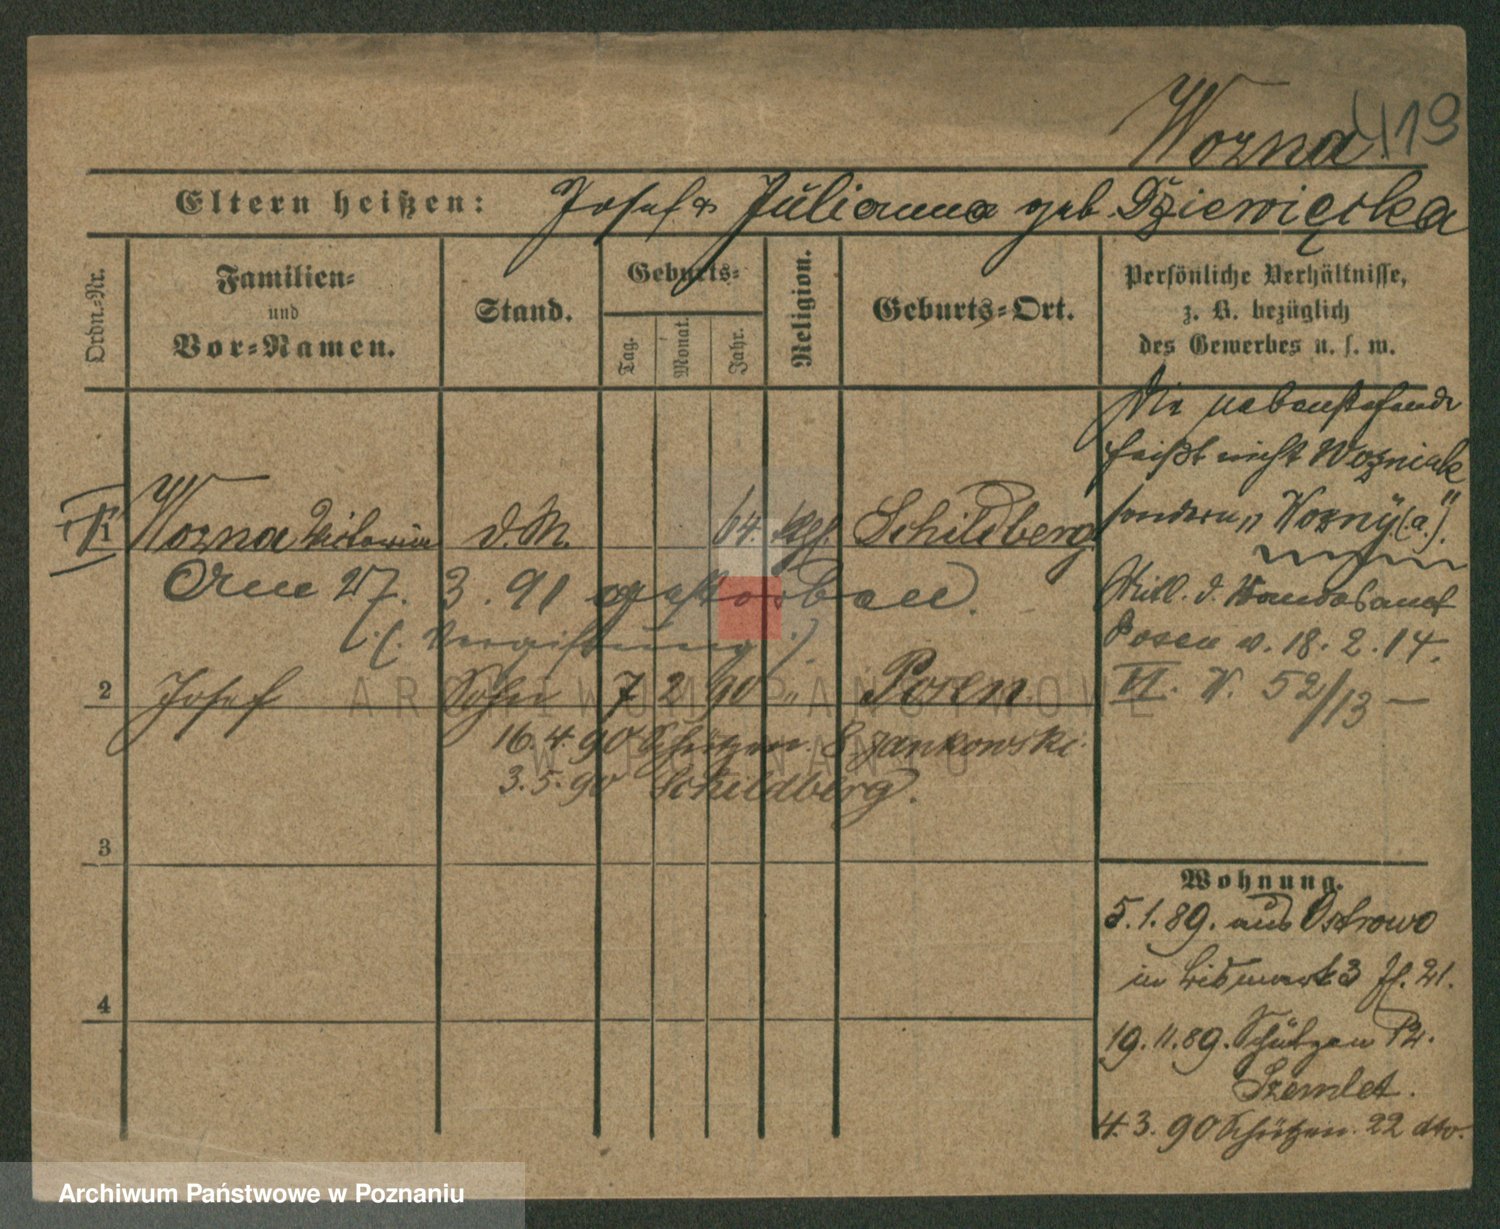 Wozna 119
Eltern heißen: Josef & Julianna geb. Dziewięcka
Ordn.-Nr.
Familien- und Vor-Namen.
Stand.
Geburts-
Tag.
Monat.
Jahr.
Religion.
Geburts-Ort.
Persönliche Verhältnisse,
z. B. bezüglich
des Gewerbes u. s. w.
Die nebenstehende
heißt nicht Wozniak
sondern „Wozny (a)."
Mitt. d. Standesamt
Posen v. 18. 2. 14.
VI. V. 52/13 —
1 Wozna Victoria d. M. 64. kath. Schildberg
Am 27. 3. 91 gestorben.
(Vergiftung.)
2 Josef Sohn 7 2 90 " Posen
16. 4. 90 Schützen. Szankowski.
3. 5. 90 Schildberg.
3
4
Wohnung.
5. 1. 89. aus Ostrowo
in Bismark 3 21.
19. 11. 89. Schützen
Szemlet.
4. 3. 90 Schützen. 22 dto.
ARCHIWUM PAŃSTWOWE
W POZNANIU
Archiwum Państwowe w Poznaniu